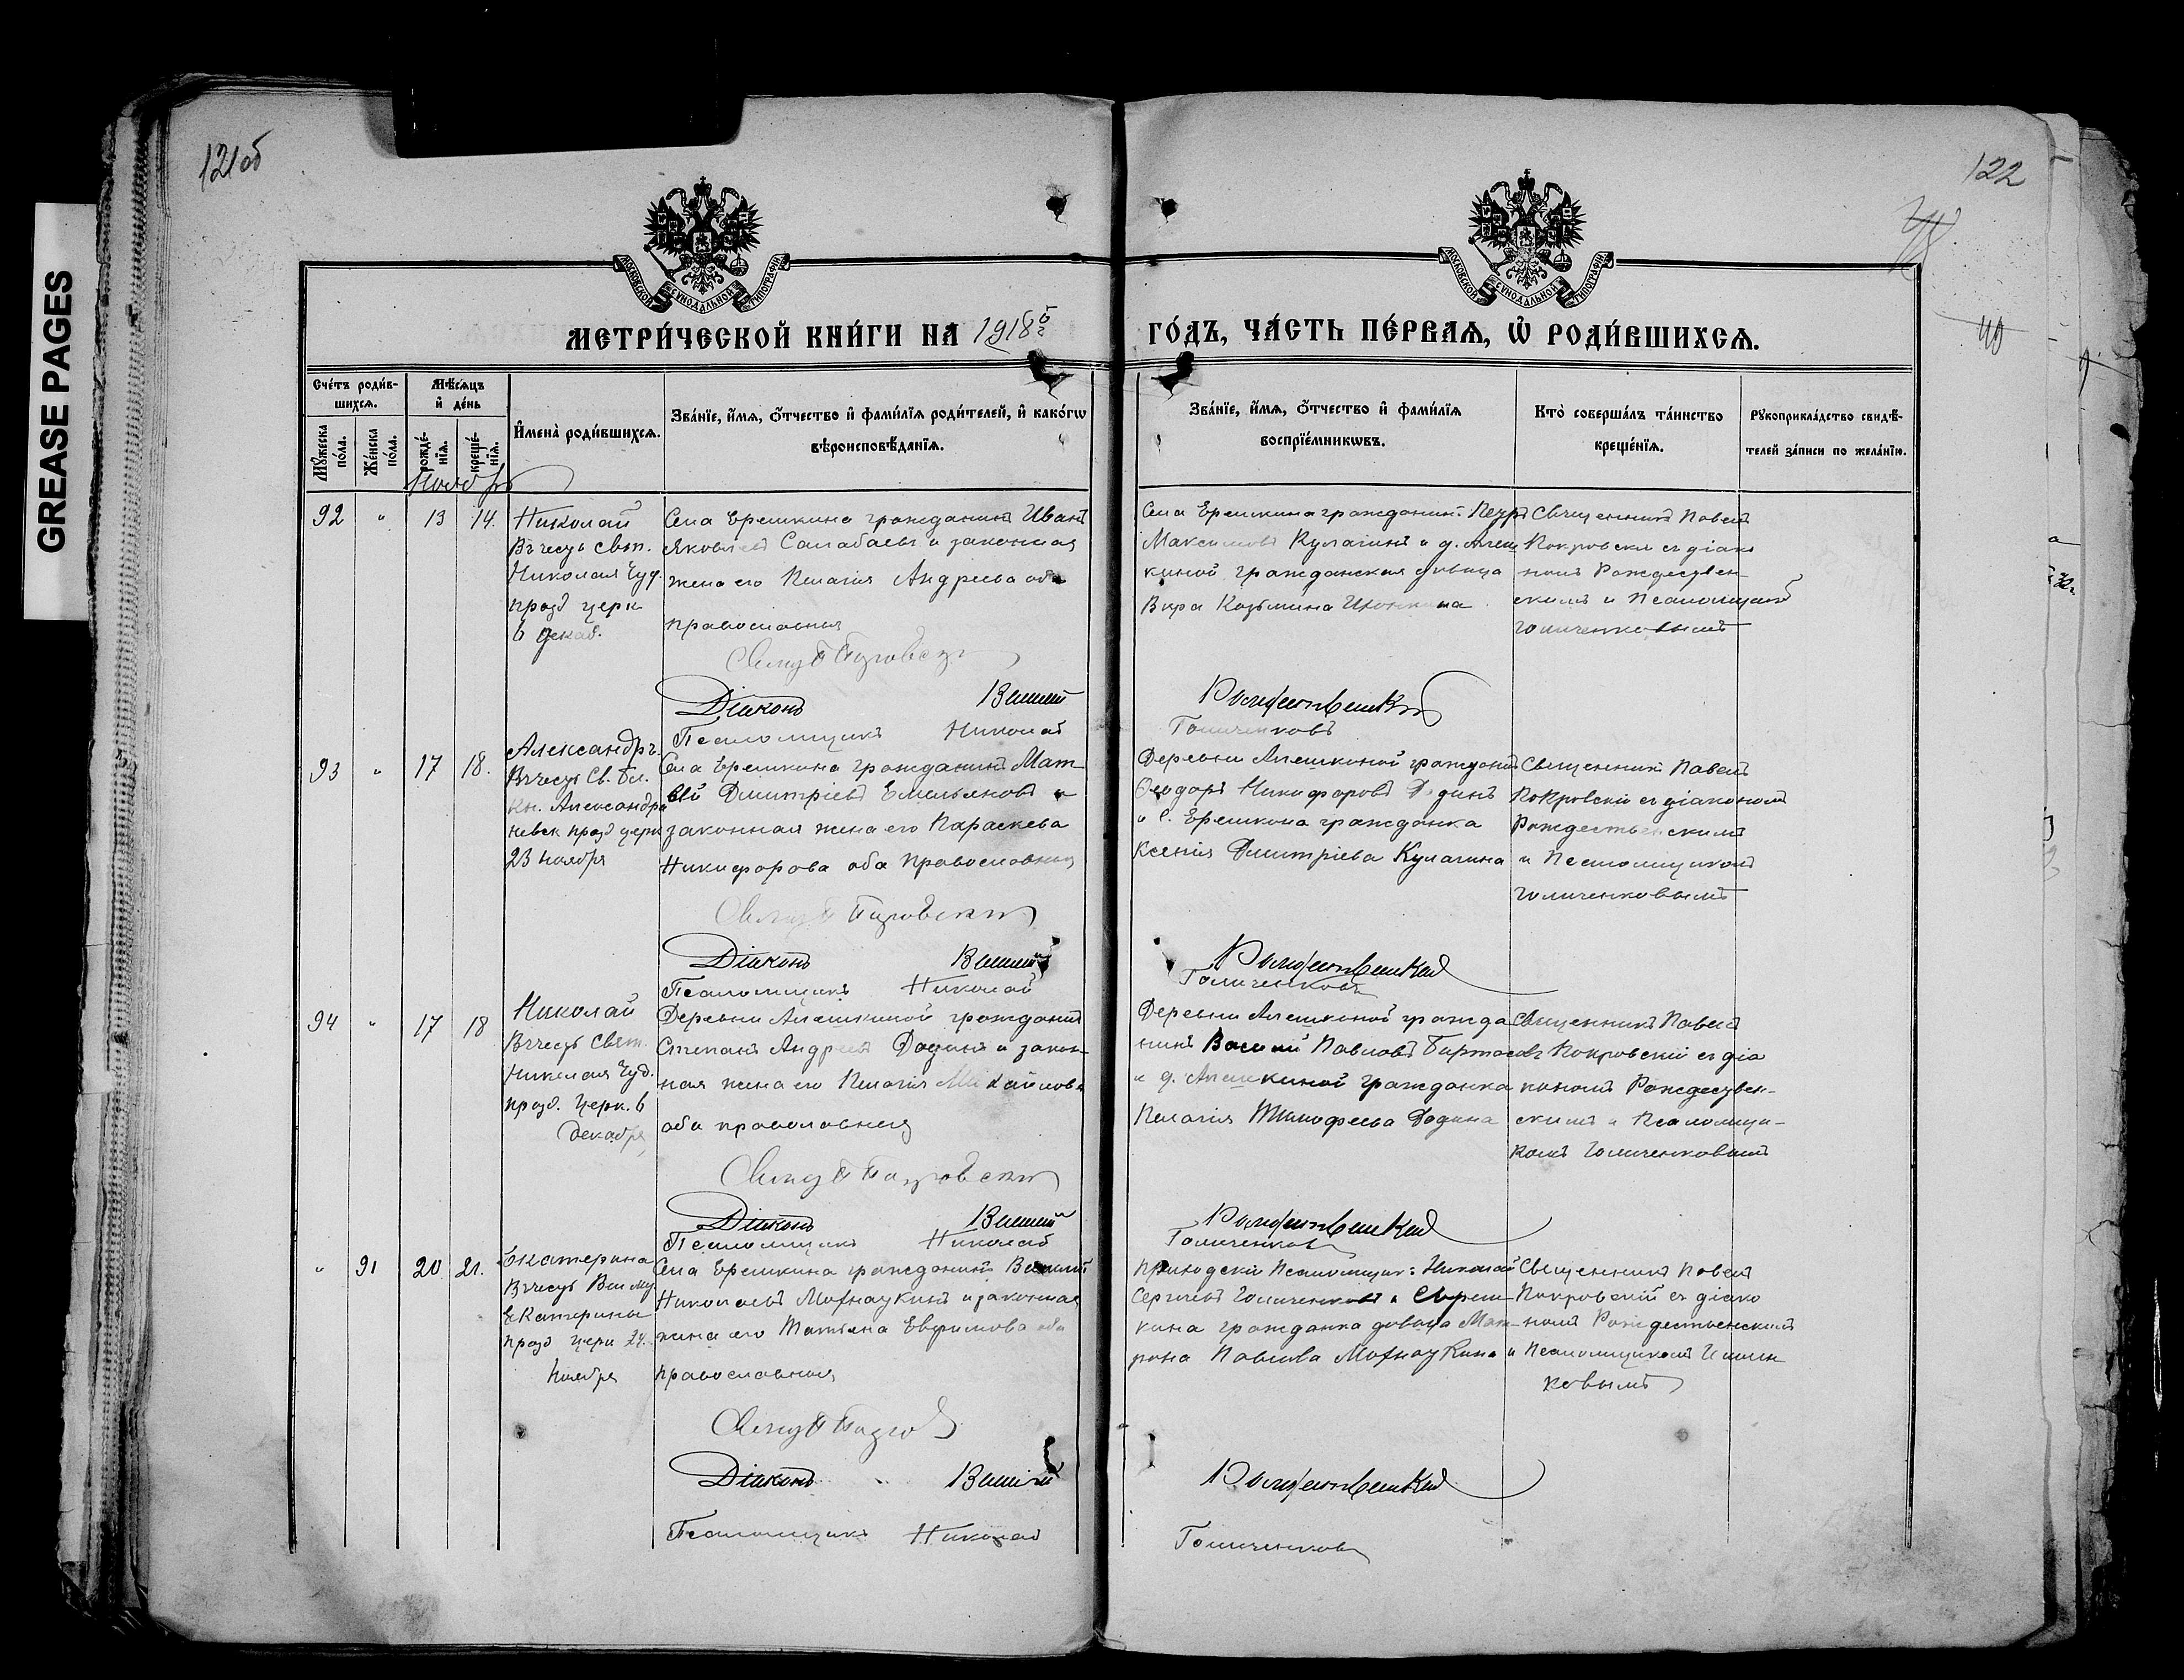 GREASE PAGES
121об
122
40
МОСКОВСКОЙ СѴНОДАЛЬНОЙ ТИПОГРАФІИ
МОСКОВСКОЙ СѴНОДАЛЬНОЙ ТИПОГРАФІИ
МЕТРИ́ЧЕСКОЙ КНИ́ГИ НА 1918 ГО́ДЪ, ЧА́СТЬ ПЕ́РВАѦ, Ѡ РОДИ́ВШИХСѦ.
Сче́тъ роди́в-
шихсѧ.
Мꙋ́жеска по́ла.
Же́нска по́ла.
Мѣ́сѧцъ
и҆ де́нь
рожде́-
нїѧ.
креще́-
нїѧ.
И҆мена̀ роди́вшихсѧ.
Зва́нїе, и҆́мѧ, ѻ҆́тчество и҆ фами́лїѧ роди́телей, и҆ како́гѡ
вѣроисповѣ́данїѧ.
Зва́нїе, и҆́мѧ, ѻ҆́тчество и҆ фами́лїѧ
воспрїе́мникѡвъ.
Кто̀ соверша́лъ та́инство
креще́нїѧ.
Рꙋкоприкла́дство свидѣ́-
телей за́писи по жела́нїю.
Ноябрь
92 " 13 14.
Николай
Въ честь свят.
Николая Чуд.
празд церк
6 декаб.
Села Еремкина гражданинъ Иванъ
Яковлевъ Салабаевъ и законная
жена его Пелагія Андреева оба
православныя
Діаконъ Василій
Псаломщикъ Николай
Села Еремкина гражданинъ Петръ
Максимовъ Кулагинъ и д. Алеш
киной гражданская девица
Вера Козьмина
Рождественскій
Голиченковъ
Священникъ Павелъ
Покровскій съ діако
номъ Рождествен-
скимъ и Псаломщикомъ
Голиченковымъ
93 " 17 18.
Александръ.
Въ честь Св. Бл.
Кн. Александра
Невск празд церк
23 ноября
Села Еремкина гражданинъ Мат-
вѣй Дмитріевъ Емельяновъ и
законная жена его Параскева
Никифорова оба православныя
Діаконъ Василій
Псаломщикъ Николай
Деревни Алешкиной гражданинъ
Ѳеодоръ Никифоровъ Додинъ
и с. Еремкина гражданка
Ксенія Дмитріева Кулагина
Рождественскій
Голиченковъ
Священникъ Павелъ
Покровскій съ діакономъ
Рождественскимъ
и Псаломщикомъ
Голиченковымъ
94 " 17 18
Николай
Въ честь Свят.
Николая Чуд.
празд. церк. 6
декабря
Деревни Алешкиной гражданинъ
Степанъ Андреевъ Додинъ и закон-
ная жена его Пелагія Михайлова
оба православныя
Діаконъ Василій
Псаломщикъ Николай
Деревни Алешкиной гражда
нинъ Василій Павловъ
и д. Алешкиной гражданка
Пелагія Тимофеева Додина
Рождественскій
Голиченковъ
Священникъ Павелъ
Покровскій съ діа
кономъ Рождествен-
скимъ и Псаломщи-
комъ Голиченковымъ
" 91 20 21.
Екатерина
Въ честь Вел му
Екатерины
празд церк 24.
ноября
Села Еремкина гражданинъ Василій
Николаевъ Мохнаткинъ и законная
жена его Татьяна Евфимова оба
православныя
Діаконъ Василій
Псаломщикъ Николай
Приходскій Псаломщикъ Николай
Сергеевъ Голиченковъ и с Ерем-
кина гражданка девица Мат-
рона Павлова Мохнаткина
Рождественскій
Голиченковъ
Священникъ Павелъ
Покровскій съ діако
номъ Рождественскимъ
и Псаломщикомъ
ковымъ